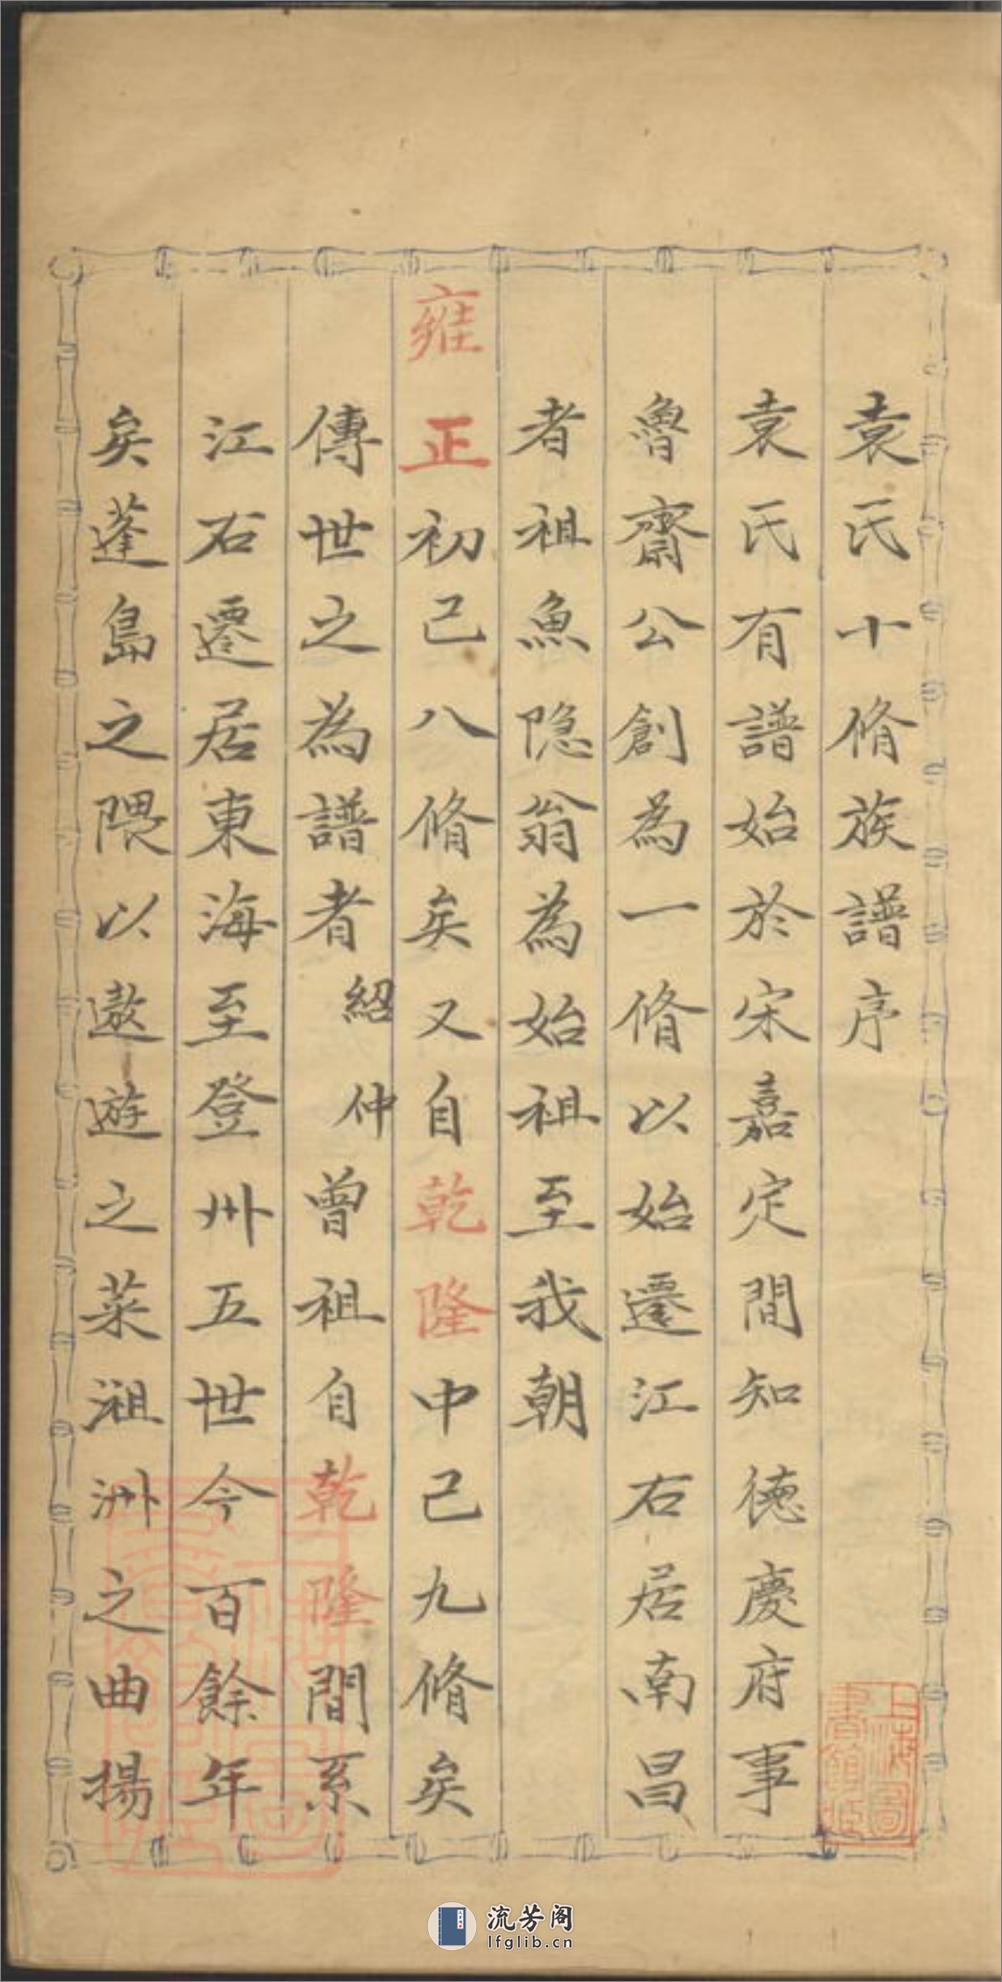 袁氏十脩族譜序
袁氏有譜始於宋嘉定間知徳慶府事
魯齋公創為一脩以始遷江右居南昌
者祖魚隐翁為始祖至我朝
雍正初己八脩矣又自乾隆中己九脩矣
傳世之為譜者紹仲曾祖自乾隆間系
江右遷居東海至登州五世今百餘年
矣蓬島之隈以遨遊之菜㵀洲之曲揚
上海圖書館藏
流芳阁
lfglib.cn